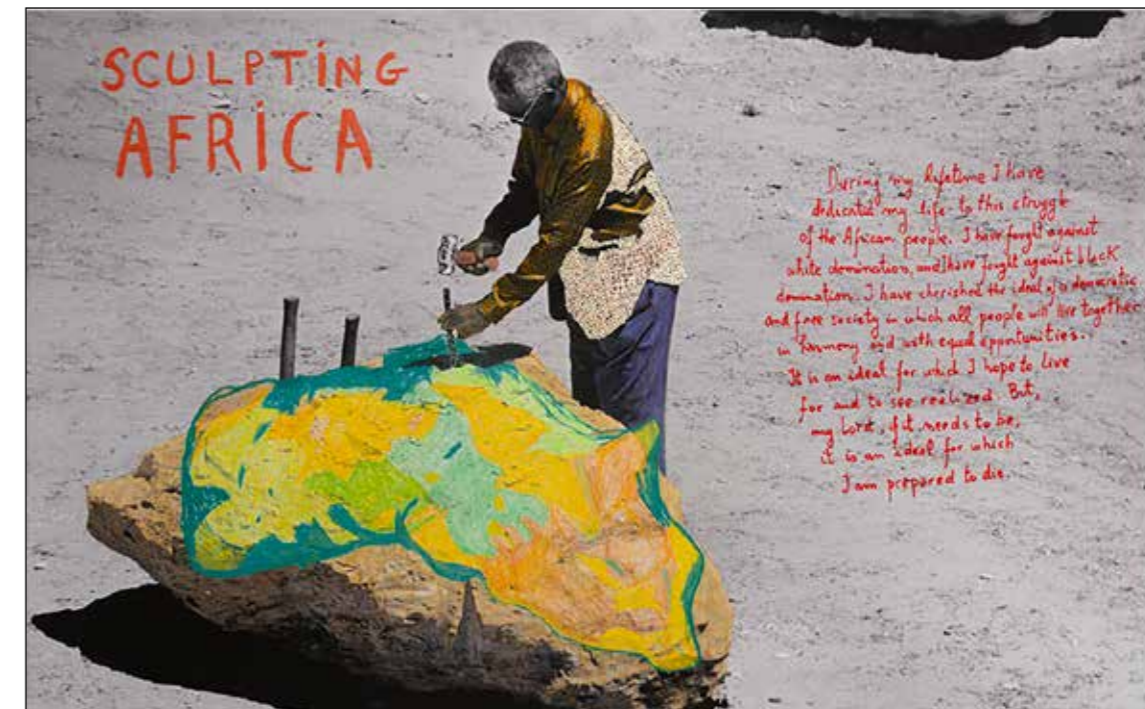 SCULPTING
AFRICA
During my lifetime I have
dedicated my life to this struggle
of the African people. I have fought against
white domination, and I have fought against black
domination. I have cherished the ideal of a democratic
and free society in which all people will live together
in harmony and with equal opportunities.
It is an ideal for which I hope to live
for and to see realized. But,
my Lord, if it needs to be,
it is an ideal for which
I am prepared to die.